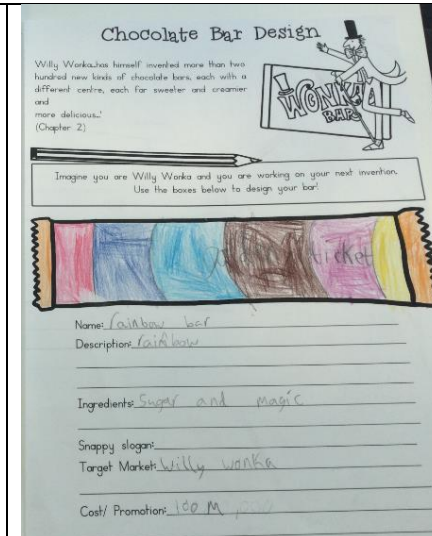 Chocolate Bar Design
Willy Wonka…has himself invented more than two
hundred new kinds of chocolate bars, each with a
different centre, each far sweeter and creamier
and
more delicious…'
(Chapter 2)
WONKA
BAR
Imagine you are Willy Wonka and you are working on your next invention.
Use the boxes below to design your bar!
ticket
Name: rainbow bar
Description: rainbow
Ingredients: Sugar and magic
Snappy slogan:
Target Market: Willy wonka
Cost/ Promotion: 100 M